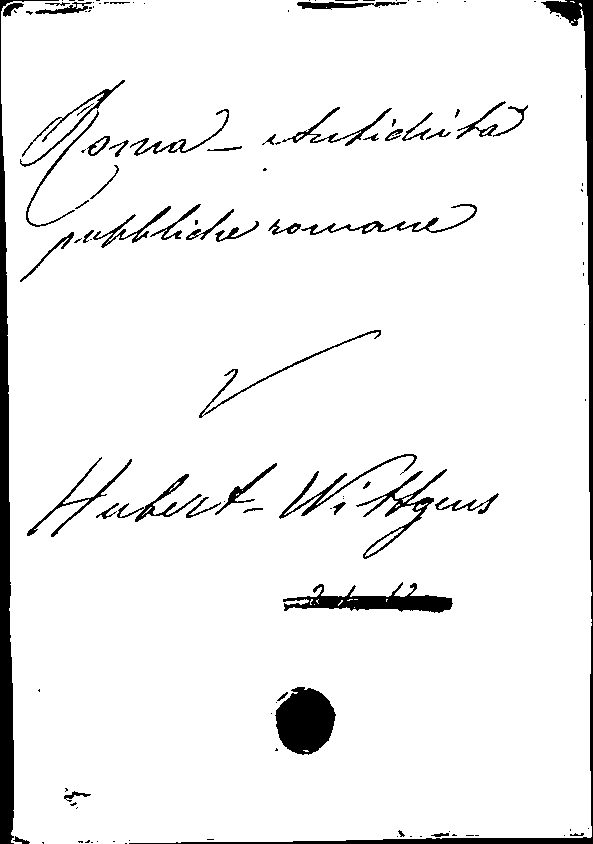 Roma - Antichità
pubbliche romane
V
Hubert - Wittgens